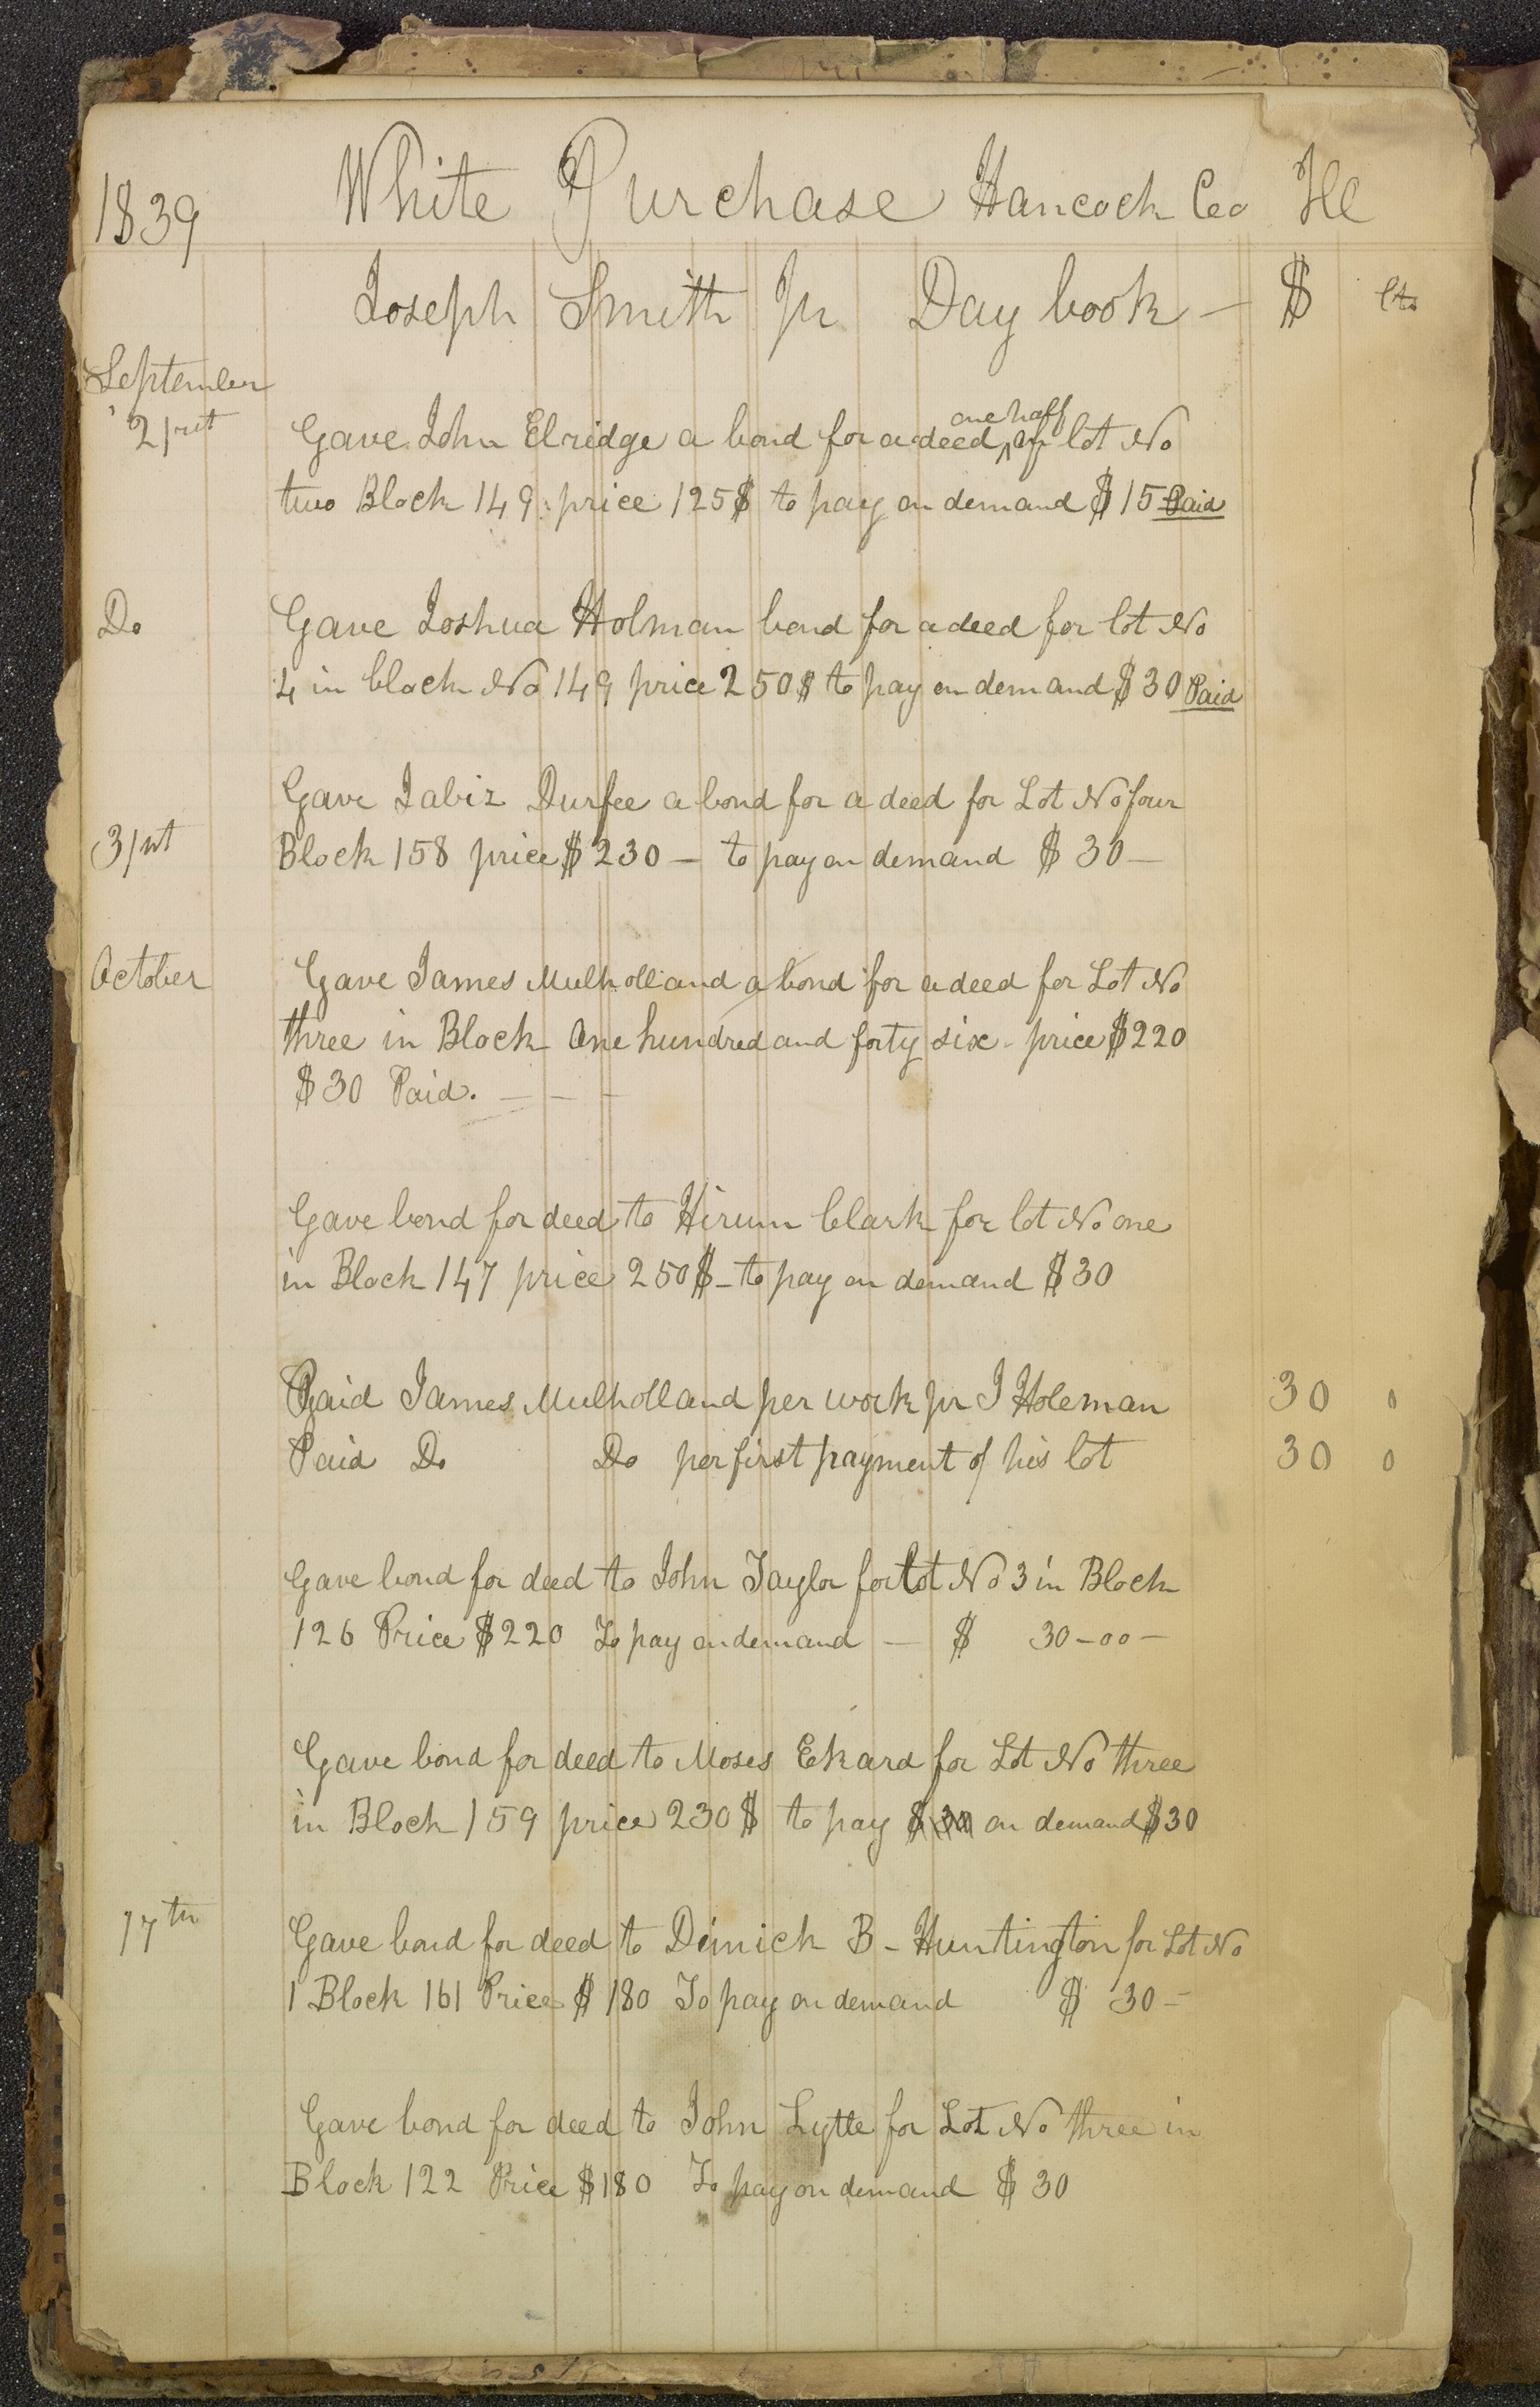 1839 White Purchase Hancock Co Ill
Joseph Smith Jr Day book — $ cts
September
21st Gave John Elridge a bond for a deed, one half of lot No
two Block 149 price 125$ to pay on demand $15 Paid
Do Gave Joshua Holman bond for a deed for lot No
4 in block No 149 price 250$ to pay on demand $30 Paid
Gave Jabiz Durfee a bond for a deed for Lot No four
31st Block 158 price $230 — to pay on demand $30 —
October Gave James Mulholland a bond for a deed for Lot No
three in Block One hundred and forty six - price $220
$30 Paid. — — —
Gave bond for deed to Hirum Clark for lot No one
in Block 147 price 250$ — to pay on demand $30
Paid James Mulholland per work pr J Holeman 30 0
Paid Do Do per first payment of his lot 30 0
Gave bond for deed to John Taylor for Lot No 3 in Block
126 Price $220 To pay on demand — $ 30-00 —
Gave bond for deed to Moses Ekard for Lot No three
in Block 159 price 230$ to pay $30 on demand $30
17th Gave bond for deed to Dimick B - Huntington for Lot No
1 Block 161 Price $180 To pay on demand $ 30 —
Gave bond for deed to John Lytle for Lot No three in
Block 122 Price $180 To pay on demand $30